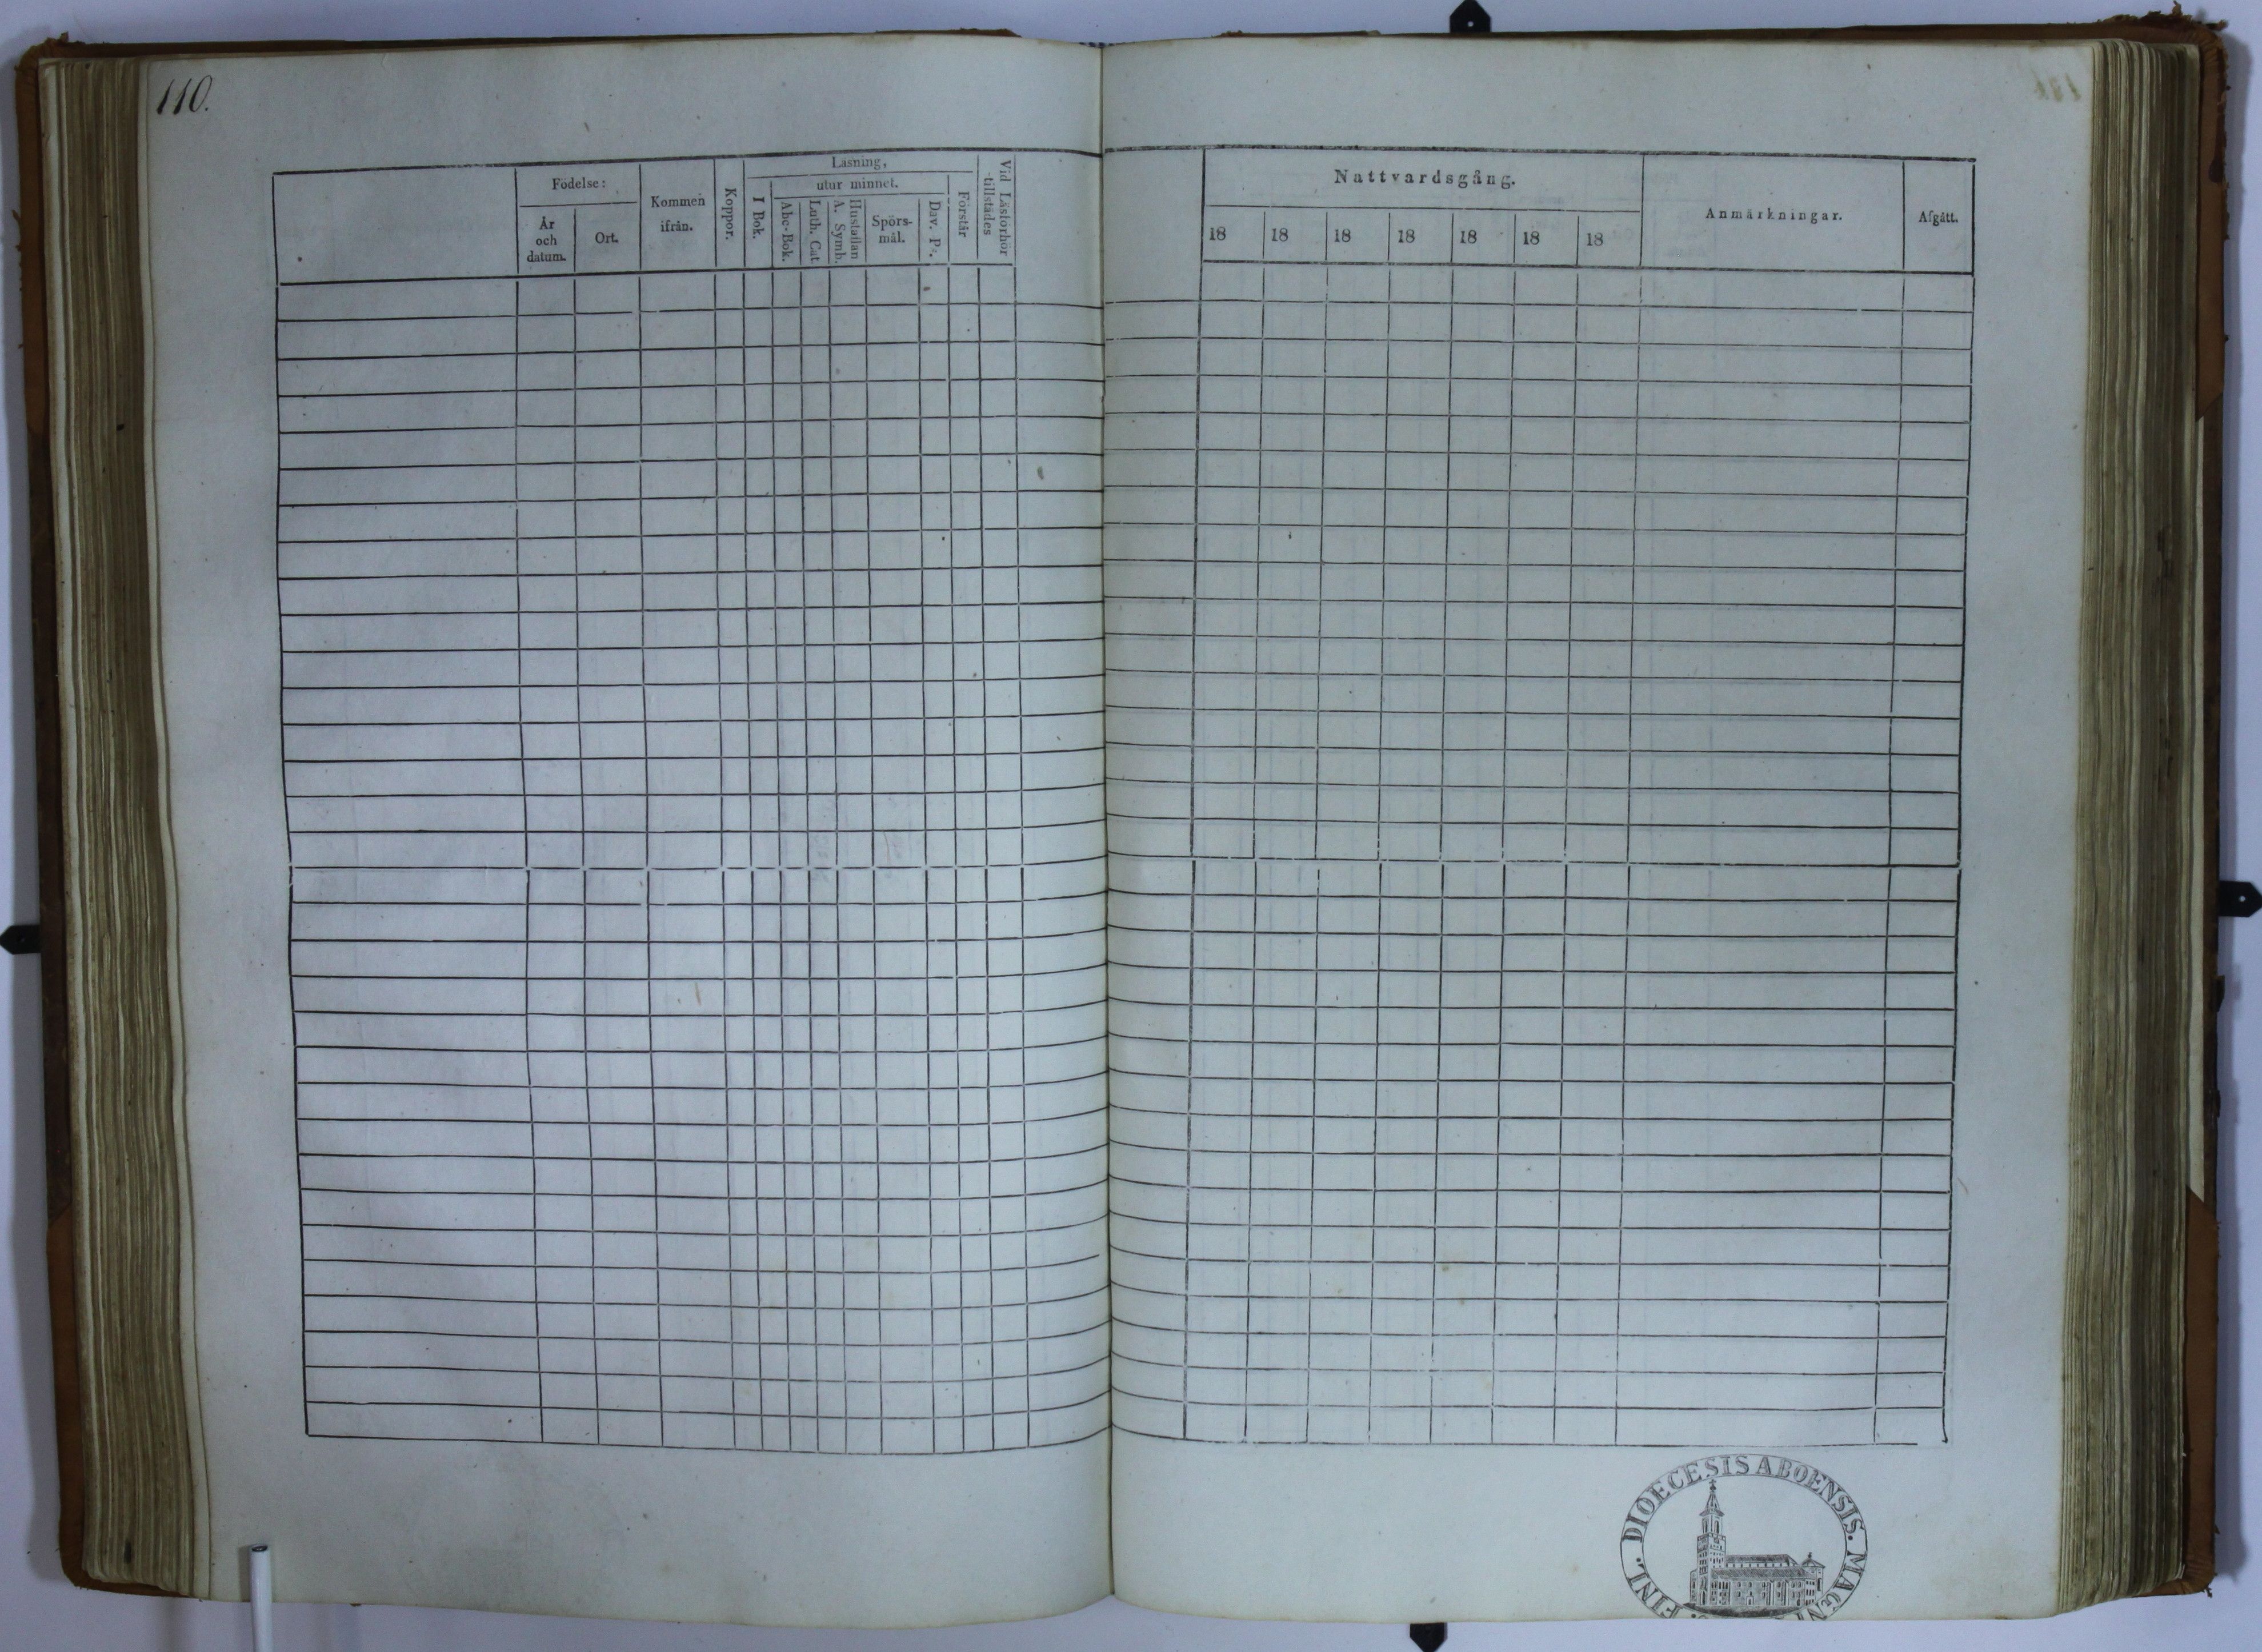 110.
Födelse:
År
och
datum.
Ort.
Kommen
ifrån.
Koppor.
Läsning,
utur minnet.
I Bok.
Abc-Bok.
Luth. Cat.
A. Symb.
Hustaflan
Spörs-
mål.
Dav. Ps.
Förstår
Vid Läsförhör
tillstädes
Nattvardsgång.
18 18 18 18 18 18 18
Anmärkningar.
Afgått.
FINL. DIOECESIS ABOENSIS. MAGNI